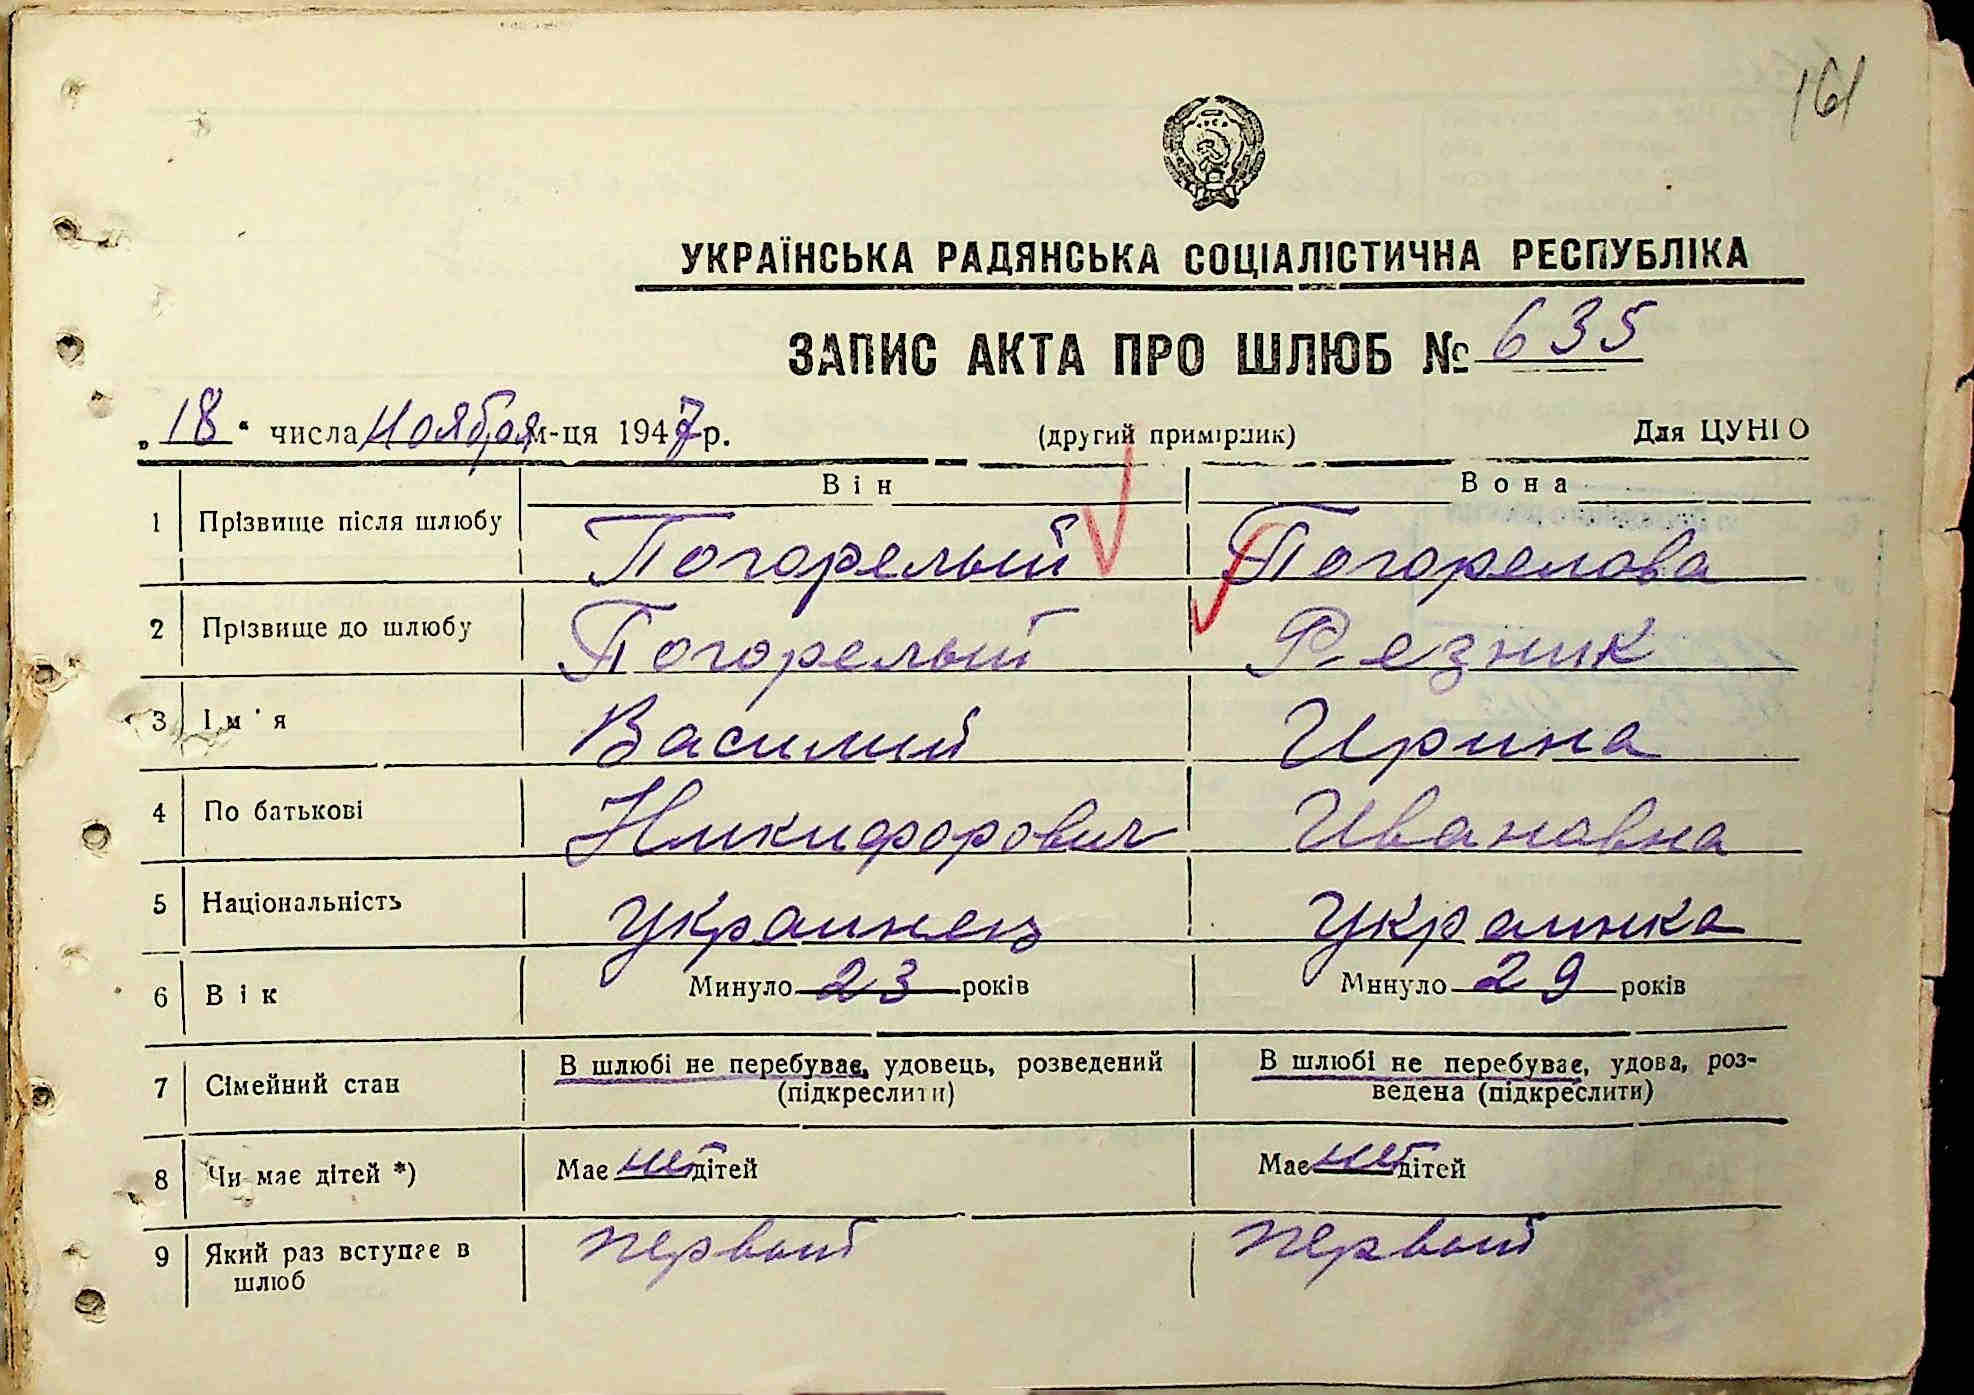 161
УКРАЇНСЬКА РАДЯНСЬКА СОЦІАЛІСТИЧНА РЕСПУБЛІКА
ЗАПИС АКТА ПРО ШЛЮБ № 635
„18“ числа Ноября м-ця 1947 р. (другий примірник) Для ЦУНГО
Він Вона
1 Прізвище після шлюбу Погорелый Погорелова
2 Прізвище до шлюбу Погорелый Резник
3 Ім'я Василий Ирина
4 По батькові Никифорович Ивановна
5 Національність Украинец Украинка
6 Вік Минуло 23 років Минуло 29 років
7 Сімейний стан В шлюбі не перебуває, удовець, розведений (підкреслити) В шлюбі не перебуває, удова, роз-
ведена (підкреслити)
8 Чи має дітей *) Має нет дітей Має нет дітей
9 Який раз вступає в шлюб первый первый